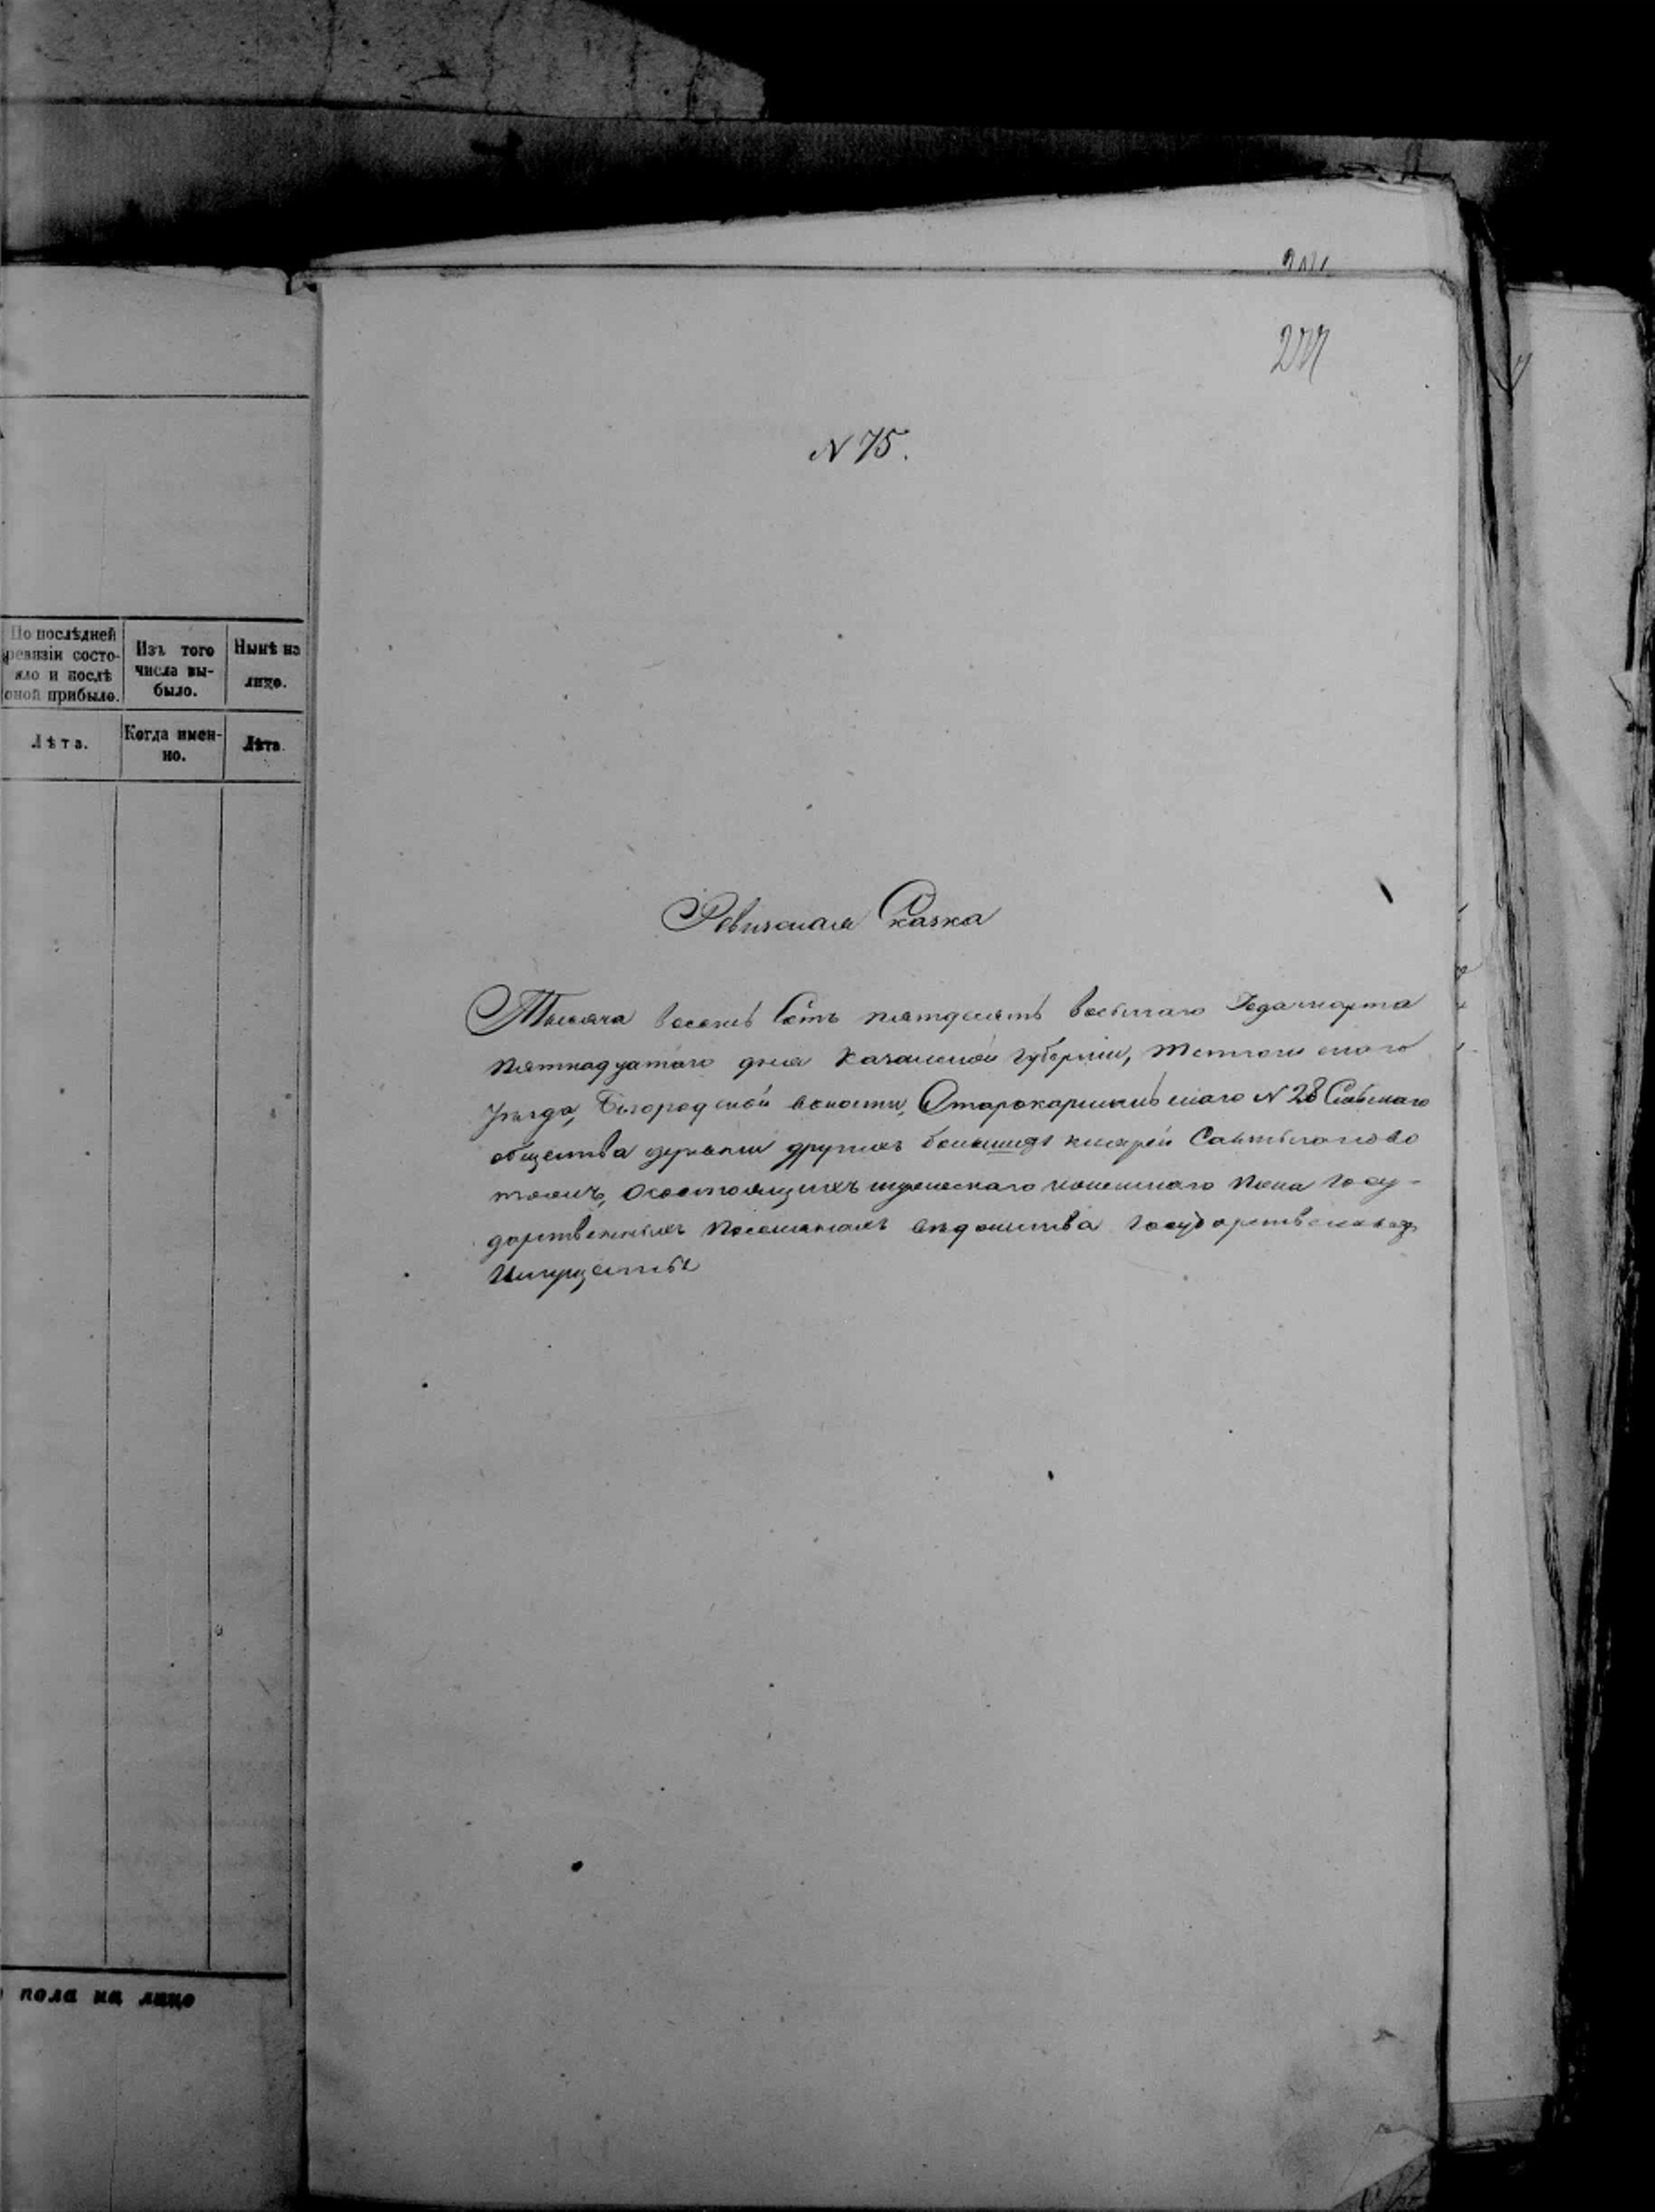 277
N 75.
По послѣдней
ревизіи состо-
яло и послѣ
оной прибыло.
Изъ того
числа вы-
было.
Нынѣ на
лицо.
Лѣта.
Когда имен-
но.
Лѣта.
пола на лицо
Ревизская Сказка
Тысяча восемь Сотъ пятдесятъ восьмаго Года марта
пятнадцатаго дня Казанской губерніи, Тетюшскаго
уѣзда, Богородской волости, Старокаришевскаго N 28 Сельскаго
общества деревни другихъ
тожъ, Осостоящихъ мужескаго женскаго пола Госу-
дарственныхъ Поселянахъ вѣдомства Государственныхъ
Имуществъ